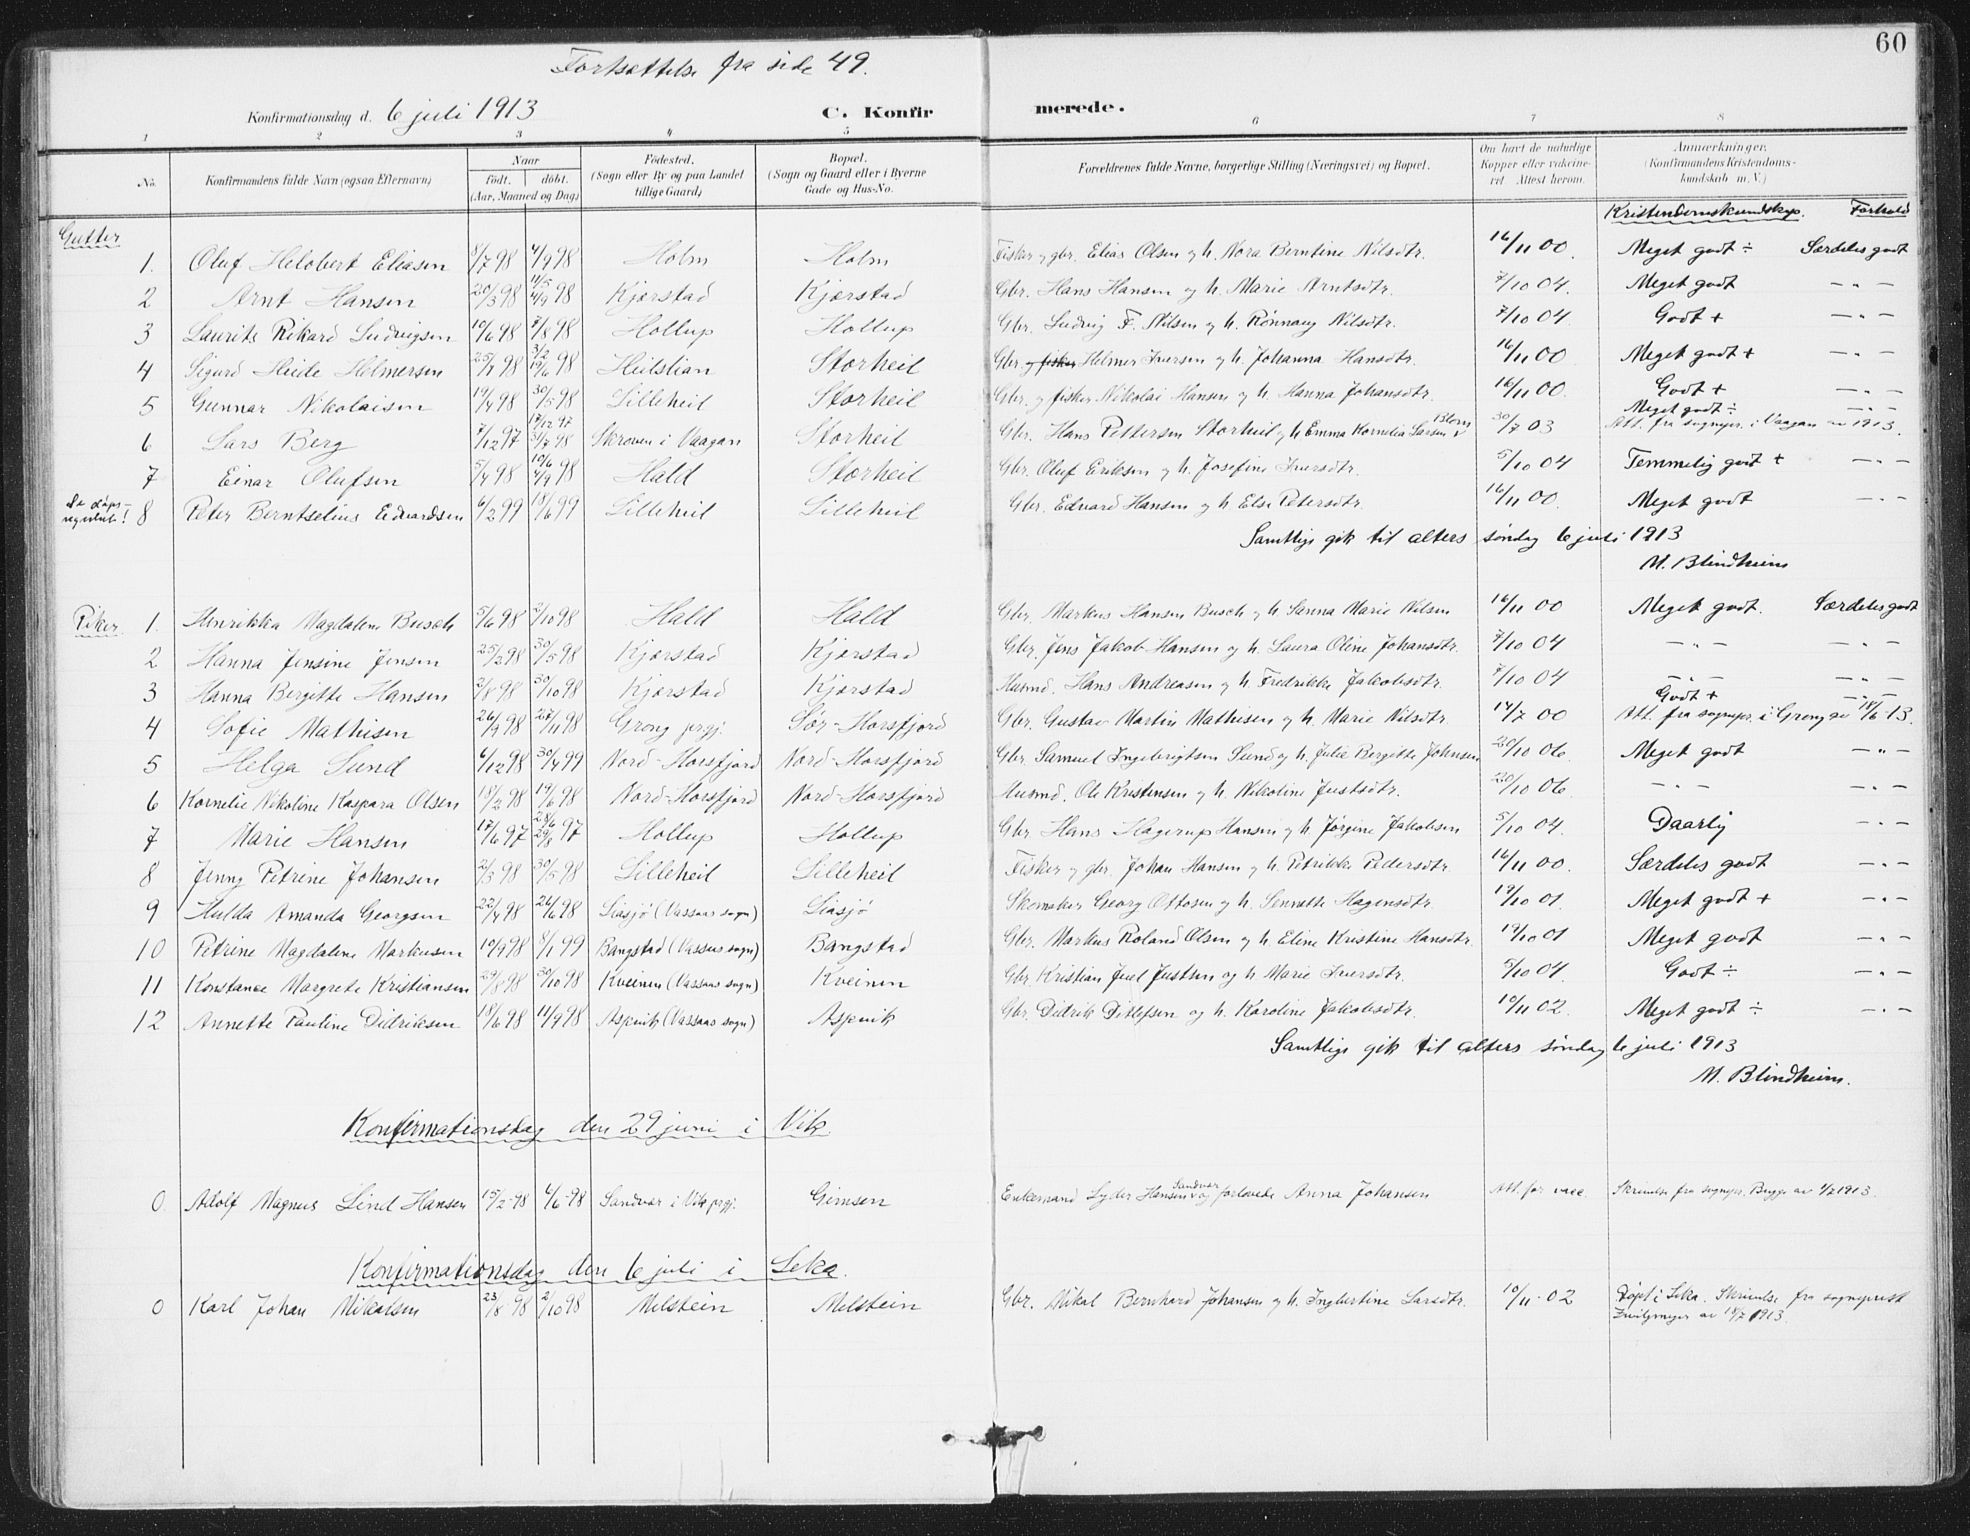 60
Fortsættelse fra side 49.
Konfirmationsdag d. 6 juli 1913 C. Konfirmerede.
1 2 3 4 5 6 7 8
No. Konfirmandens fulde Navn (ogsaa Efternavn) Naar født. døbt. (Aar, Maaned og Dag) Fødested. (Sogn eller By og paa Landet tillige Gaard) Bopæl. (Sogn og Gaard eller i Byerne Gade og Hus-No. Forældrenes fulde Navne, borgerlige Stilling (Næringsvei) og Bopæl. Om havt de naturlige Kopper eller vakcineret. Attest herom. Anmærkninger. (Konfirmandens Kristendomskundskab m. V.)
Kristendomskundskap. Forhold
Gutter
1. Oluf Helobert Eliasen 8/7 98 4/9 98 Holm Holm Fisker og gbr. Elias Olsen og h. Nora Berntine Nilsdtr. 16/11 00. Meget godt ÷ Særdeles godt
2 Arnt Hansen 20/3 98 11/5 4/9 98 Kjærstad Kjærstad Gbr. Hans Hansen og h. Marie Arntsdtr. 7/10 04. Meget godt — " —
3 Laurits Rikard Ludvigsen 10/6 98 7/8 98 Hollup Hollup Gbr. Ludvig F. Nilsen og h. Rönnaug Nilsdtr. 7/10 04. Godt + — " —
4 Sigurd Heide Helmersen 25/1 98 3/2 19/6 98 Heilstian Storheil Gbr. og fisker Helmer Iversen og h. Johanna Hansdtr. 16/11 00. Meget godt + — " —
5 Gunnar Nikolaisen 19/4 98 30/5 98 Lilleheil Storheil Gbr. og fisker Nikolai Hansen og h. Hanna Johansdtr. 16/11 00. Godt + — " —
6 Lars Berg 7/12 97 17/12 97 31/7 98 Skroven i Vaagan Storheil Gbr. Hans Pettersen Storheil og h. Emma Kornelia Larsen Blom 30/7 03 Meget godt ÷ — " — Att. fra sognepr. i Vaagan 1913.
7 Einar Olufsen 5/4 98 10/6 4/9 98 Hald Storheil Gbr. Oluf Eriksen og h. Josefine Iversdtr. 5/10 04 Temmelig godt + — " —
Se døpsregistret! 8 Peter Berntselius Edvardsen 6/2 99 18/6 99 Lilleheil Lilleheil Gbr. Edvard Hansen og h. Else Petersdtr. 16/11 00. Meget godt — " —
Samtlige gik til alters søndag 6 juli 1913
M. Blindheim
Piker 1. Henrikka Magdalene Busch 5/6 98 2/10 98 Hald Hald Gbr. Markus Hansen Busch og h. Sanna Marie Nilsen 16/11 00 Meget godt. Særdeles godt
2 Hanna Jensine Jensen 25/2 98 30/5 98 Kjærstad Kjærstad Gbr. Jens Jakob Hansen og h. Laura Oline Johansdtr. 7/10 04 — " — — " —
3 Hanna Bergitte Hansen 2/8 98 30/10 98 Kjærstad Kjærstad Husmd. Hans Andreasen og h. Fredrikke Jakobsdtr. 7/10 04 — " — — " —
4 Sofie Mathisen 26/9 98 27/11 98 Grong prgj. Sør-Horsfjord Gbr. Gustav Martin Mathisen og h. Marie Nilsdtr. 14/7 00 Godt + — " — Att. fra sognepr. i Grong av 18/6-13.
5 Helga Sund 6/12 98 30/4 99 Nord-Horsfjord Nord-Horsfjord Gbr. Samuel Ingebrigtsen Sund og h. Julia Bergitte Johnsen 20/10 06. Meget godt — " —
6 Kornelie Nikoline Kaspara Olsen 18/2 98 19/6 98 Nord-Horsfjord Nord-Horsfjord Husmd. Ole Kristensen og h. Nikoline Justsdtr. 20/10 06. — " — — " —
7 Marie Hansen 17/6 97 28/6 29/8 97 Hollup Hollup Gbr. Hans Hagerup Hansen og h. Jørgine Jakobsen 5/10 04. Daarlig — " —
8 Jenny Petrine Johansen 2/3 98 30/5 98 Lilleheil Lilleheil Fisker og gbr. Johan Hansen og h. Petrikke Pedersdtr. 16/11 00. Særdeles godt — " —
9 Hulda Amanda Georgsen 22/4 98 26/6 98 Liasjø (Vassaas sogn) Liasjø Skomaker Georg Ottosen og h. Sennette Hagensdtr. 19/10 01. Meget godt + — " —
10 Petrine Magdalene Markusen 10/9 98 8/1 99 Bangstad (Vassaas sogn) Bangstad Gbr. Markus Roland Olsen og h. Eline Kristine Hansdtr. 19/10 01 Meget godt — " —
11 Konstance Margrete Kristiansen 29/8 98 30/10 98 Kveinen (Vassaas sogn) Kveinen Gbr. Kristian Juel Justsen og h. Marie Iversdtr. 5/10 04. Godt ÷ — " —
12 Annette Pauline Didriksen 18/6 98 11/9 98 Aspvik (Vassaas sogn) Aspvik Gbr. Didrik Ditlefsen og h. Karoline Jakobsdtr. 10/11 02. Meget godt ÷ — " —
Samtlige gik til alters søndag 6 juli 1913
M. Blindheim.
Konfirmationsdag den 29 juni i Vik
0. Adolf Magnus Lind Hansen 15/2-98 4/6-98 Sandvær i Vik prgj. Gimsen Enkemand Lyder Hansen Sandvær og forlovede Anna Johansen Att. for vacc. Skrivelse fra sognepr. Brygge av 1/7 1913.
Konfirmationsdag den 6 juli i Leka.
0 Karl Johan Mikalsen 23/8 98 2/10 98 Melstein Melstein Gbr. Mikal Bernhard Johansen og h. Ingbertine Larsdtr. 10/11-02 Døpt i Leka. Skrivelse fra sogneprest av 18/7 1913.